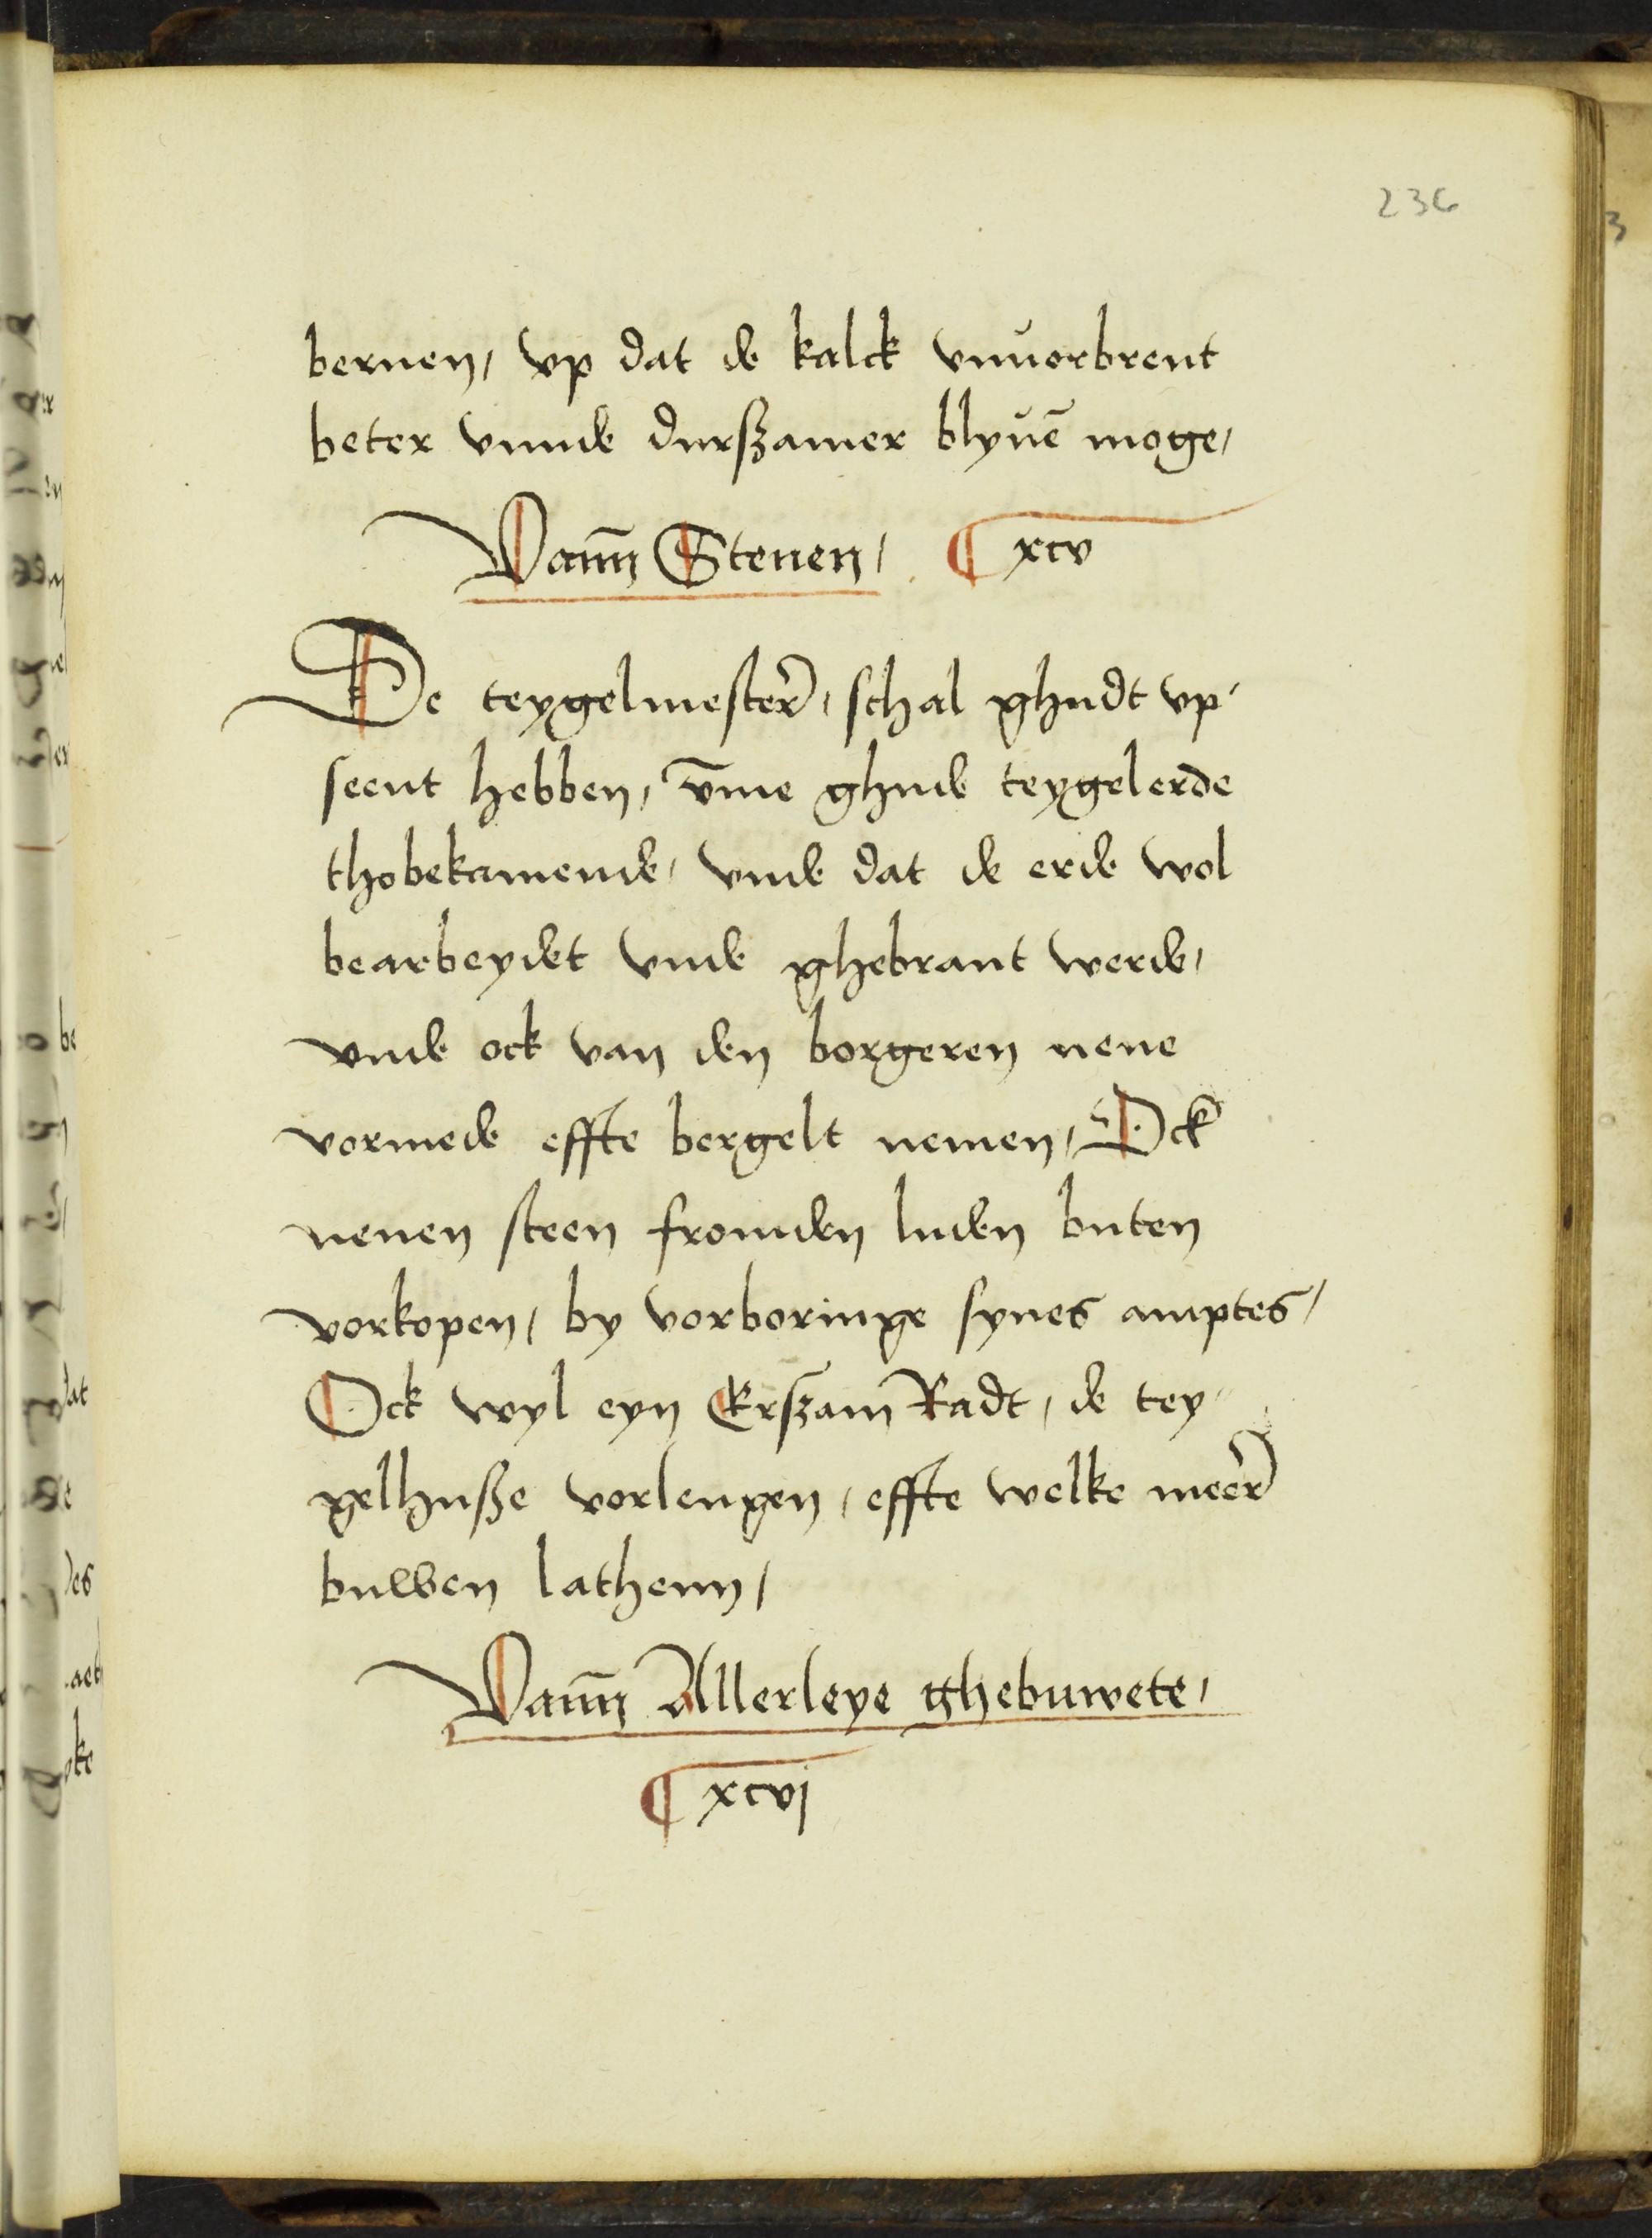 236
bernen, vp dat de kalck vnuorbrent
beter vnnde durszamer blyuē moge,
Vann̄ Stenen, ¶ xcv
De teygelmester, schal ghudt vp-
seent hebben, v̄me ghude teygelerde
thobekamende, vnde dat de erde wol
bearbeydet vnde ghebrant werde,
vnde ock van den borgeren nene
vormede effte bergelt nemen, Ock
nenen steen fromden luden buten
vorkopen, by vorboringe synes amptes,
Ock wyl eyn Erszam Radt, de tey-
gelhusze vorlengen, effte welke meer
buwen lathenn,
Vann̄ Allerleye ghebuwete,
¶ xcvj